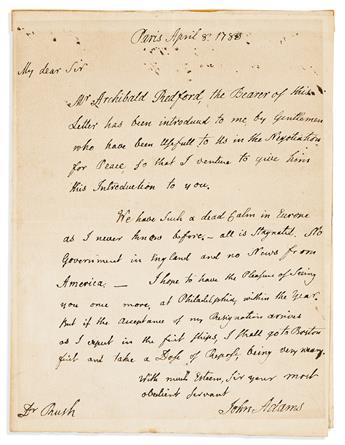 Paris April 8. 1783
My dear Sir
Mr Archibald Redford, the Bearer of this
Letter has been introduced to me, by Gentlemen
who have been Usefull to Us in the Negotiation
for Peace, so that I venture to give him
this Introduction to you.
We have Such a dead Calm in Europe
as I never knew before,- all is Stagnated. No
Government in England and no News from
America. — I hope to have the Pleasure of Seeing
you once more, at Philadelphia, within the Year.
But if the Acceptance of my Resignation arrives
as I expect in the first ships, I shall go to Boston
first and take a Dose of Repose, being very weary.
With much Esteem, Sir your most
obedient servant
Dr Rush John Adams